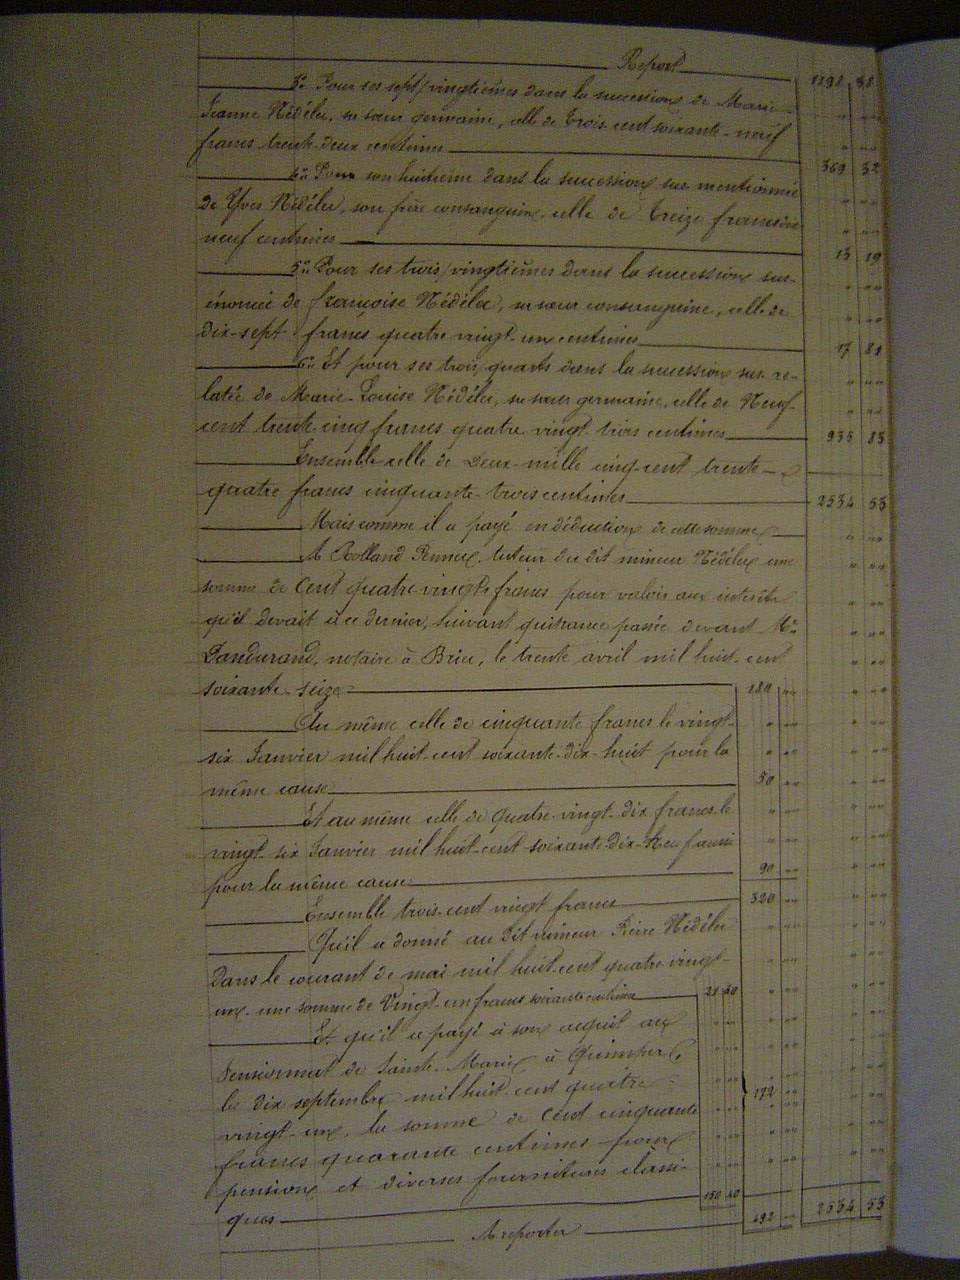 Report 1198 38
3° Pour ses sept/vingtièmes dans la succession de Marie
Jeanne Nédélec, sa sœur germaine, celle de Trois cent soixante-neuf
francs trente-deux centimes 369 32
4° Pour son huitième dans la succession sus-mentionnée
de Yves Nédélec, son frère consanguin, celle de Treize francs dix
neuf centimes 13 19
5° Pour ses trois/vingtièmes dans la succession sus-
énoncée de françoise Nédélec, sa sœur consanguine, celle de
dix-sept francs quatre vingt-un centimes 17 81
6° Et pour ses trois/quarts dans la succession sus re-
latée de Marie-Louise Nédélec, sa sœur germaine, celle de Neuf
cent trente cinq francs quatre vingt trois centimes 935 83
Ensemble celle de Deux-mille cinq-cent trente-
quatre francs cinquante-trois centimes 2534 53
Mais comme il a payé en déduction de cette somme
A Rolland Pennec, tuteur du dit mineur Nédélec une
somme de Cent quatre-vingts francs pour valoir aux intérêts
qu'il devait à ce dernier, suivant quittance passée devant Me
Dandurand, notaire à Briec, le trente avril mil huit-cent
soixante-seize 180
Au même celle de cinquante francs le vingt-
six Janvier mil huit-cent soixante-dix-huit pour la
même cause 50
Et au même celle de Quatre-vingt-dix francs le
vingt-six Janvier mil huit-cent soixante-dix-Neuf aussi
pour la même cause 90
Ensemble trois-cent vingt francs 320
Qu'il a donné au dit mineur Pierre Nédélec
Dans le courant de mai mil huit-cent quatre-vingt-
un une somme de Vingt-un francs soixante centimes 21 60
Et qu'il a payé à son acquit au
Pensionnat de Sainte-Marie à Quimper,
le dix septembre mil huit-cent quatre 172
vingt-un, la somme de Cent cinquante
francs quarante centimes pour
pension et diverses fournitures classi-
ques 150 40
A reporter 492 2534 53